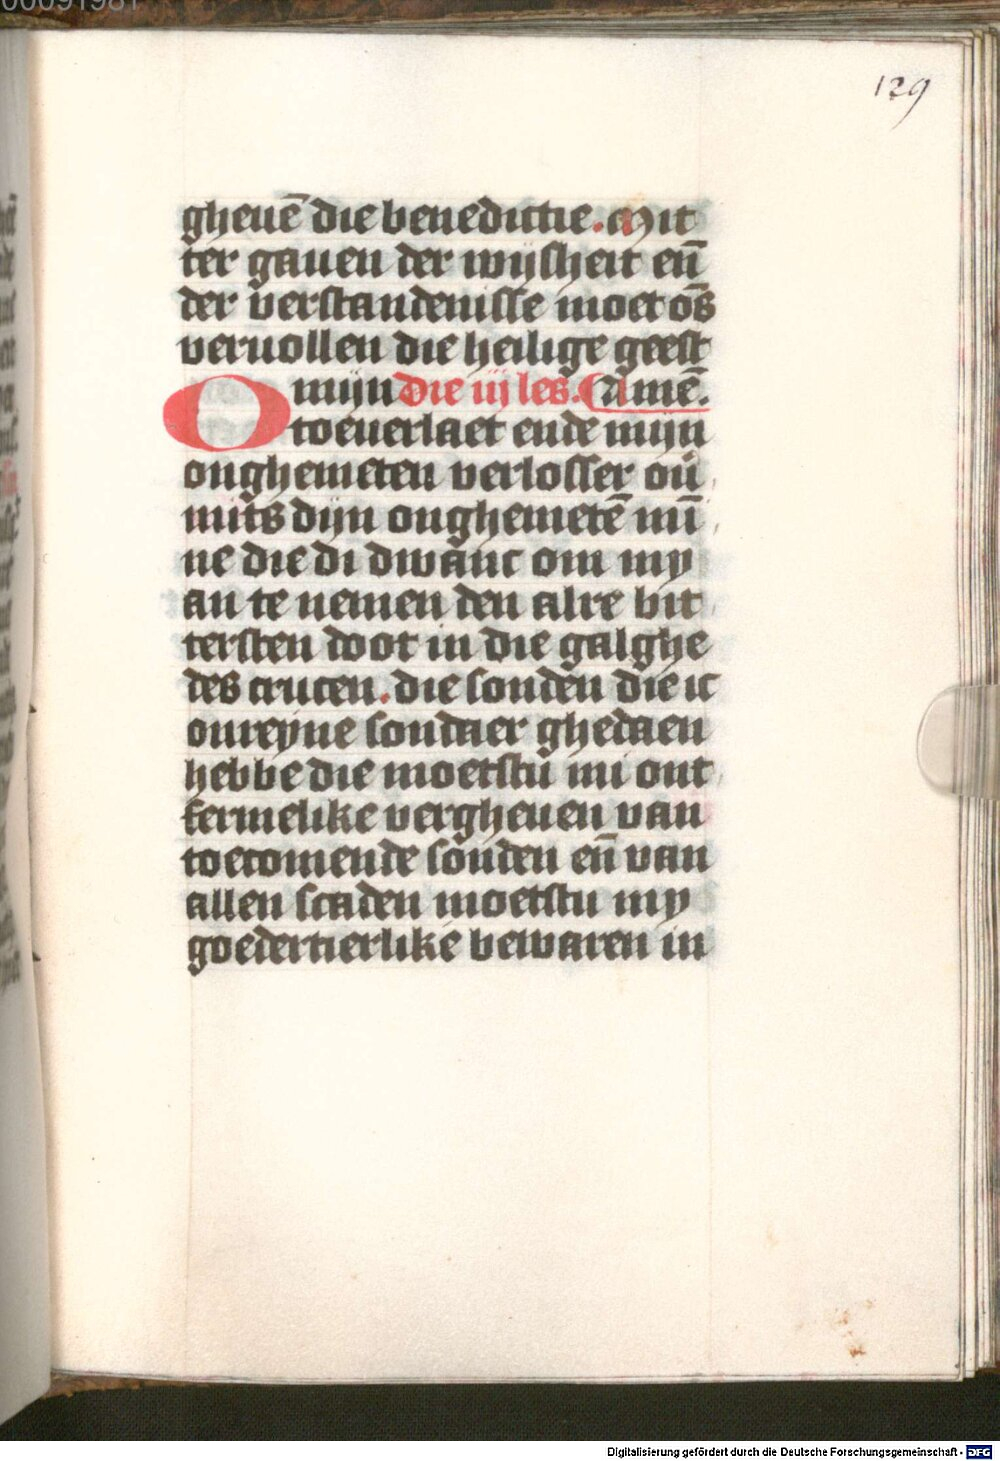 00091981
139
gheuē die benedictie. Mit
ter gauen der wijsheit eñ
der verstandenisse moet ōs
veruollen die heilige geest
O mijn die iij les. Amē.
toeuerlaet ende mijn
onghemeten verlosser ouͤ
mits dijn onghemetē mī
ne die di dwanc om my
an te nemen den alre bit
tersten doot in die galghe
des crucen. die sonden die ic
onreyne sondaer ghedaen
hebbe die moetstu mi ont
fermelike vergheuen van
toecomende sonden eñ van
allen scaden moetstu my
goedertierlike bewaren in
Digitalisierung gefördert durch die Deutsche Forschungsgemeinschaft - DFG